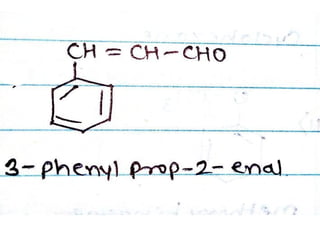 CH = CH - CHO
3-phenyl prop-2-enal.